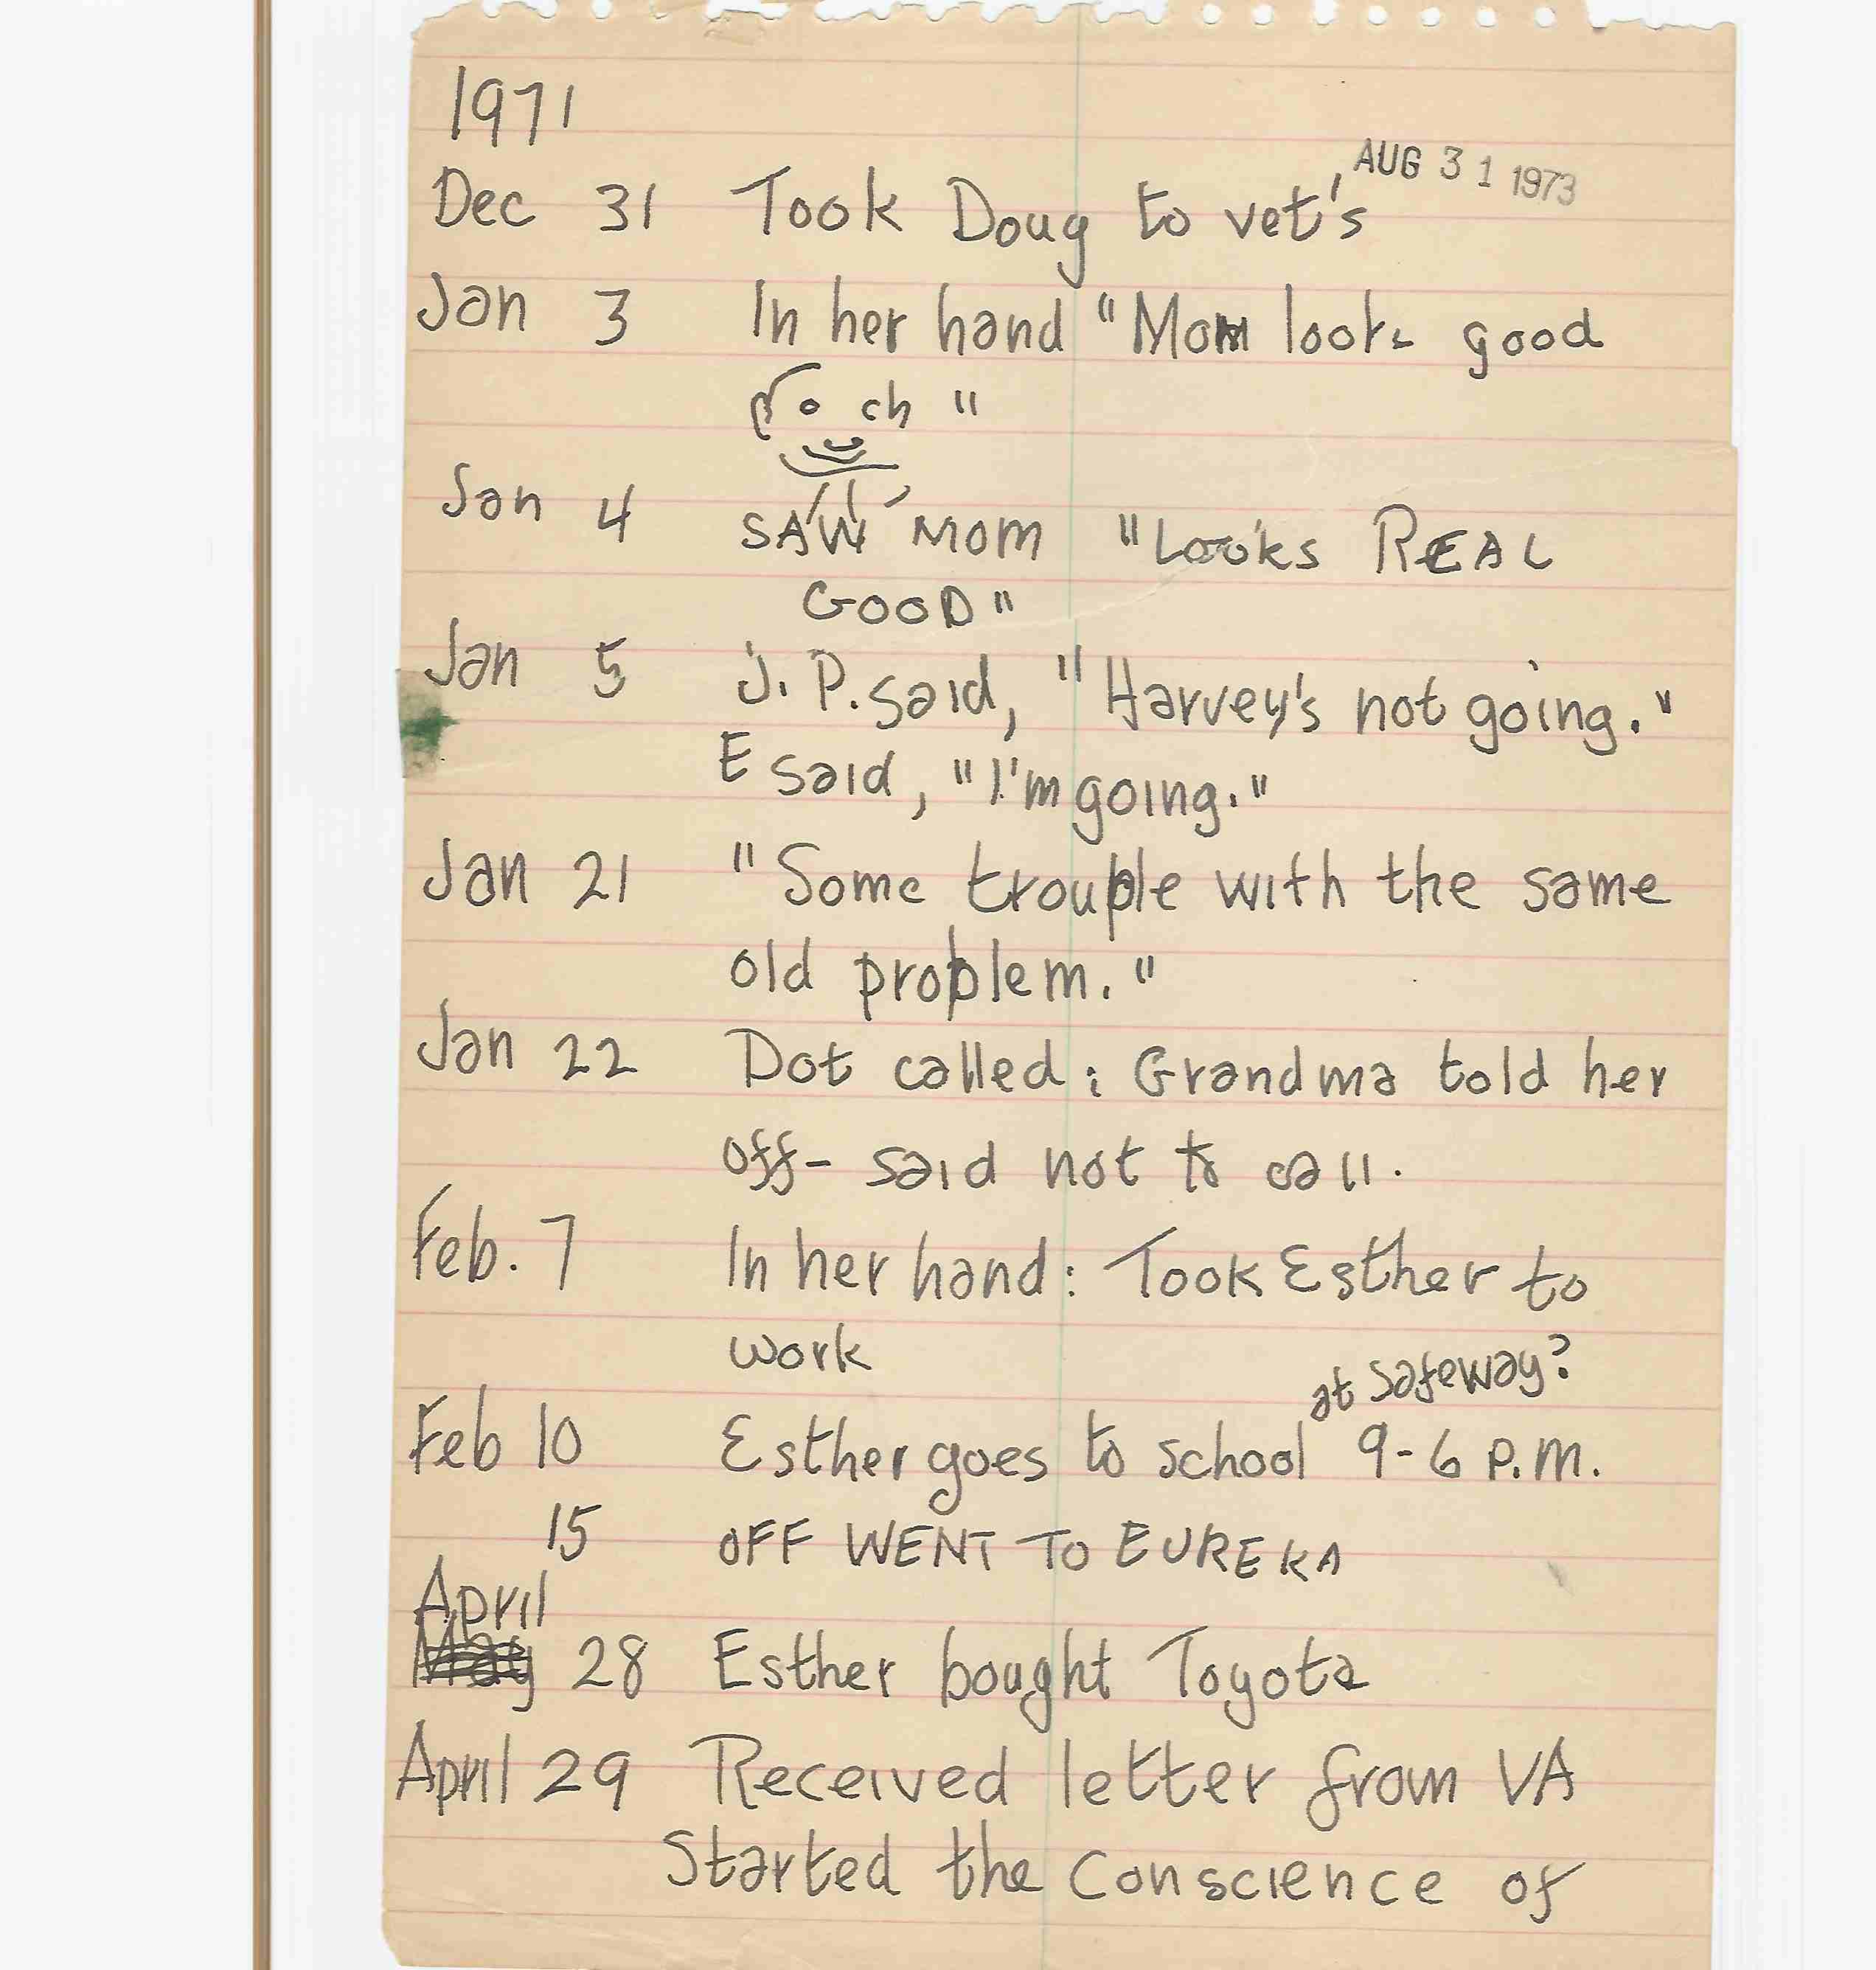 1971
AUG 31 1973
Dec 31 Took Doug to vet's
Jan 3 In her hand "Mom looks good
ch "
Jan 4 SAW MOM "LOOKS REAL
GOOD"
Jan 5 J. P. said, "Harvey's not going."
E said, "I'm going."
Jan 21 "Some trouble with the same
old problem."
Jan 22 Dot called: Grandma told her
off - said not to call.
Feb. 7 In her hand: Took Esther to
work
at Safeway?
Feb 10 Esther goes to school 9-6 P.M.
15 OFF WENT TO EUREKA
April
May 28 Esther bought Toyota
April 29 Received letter from VA
Started the Conscience of